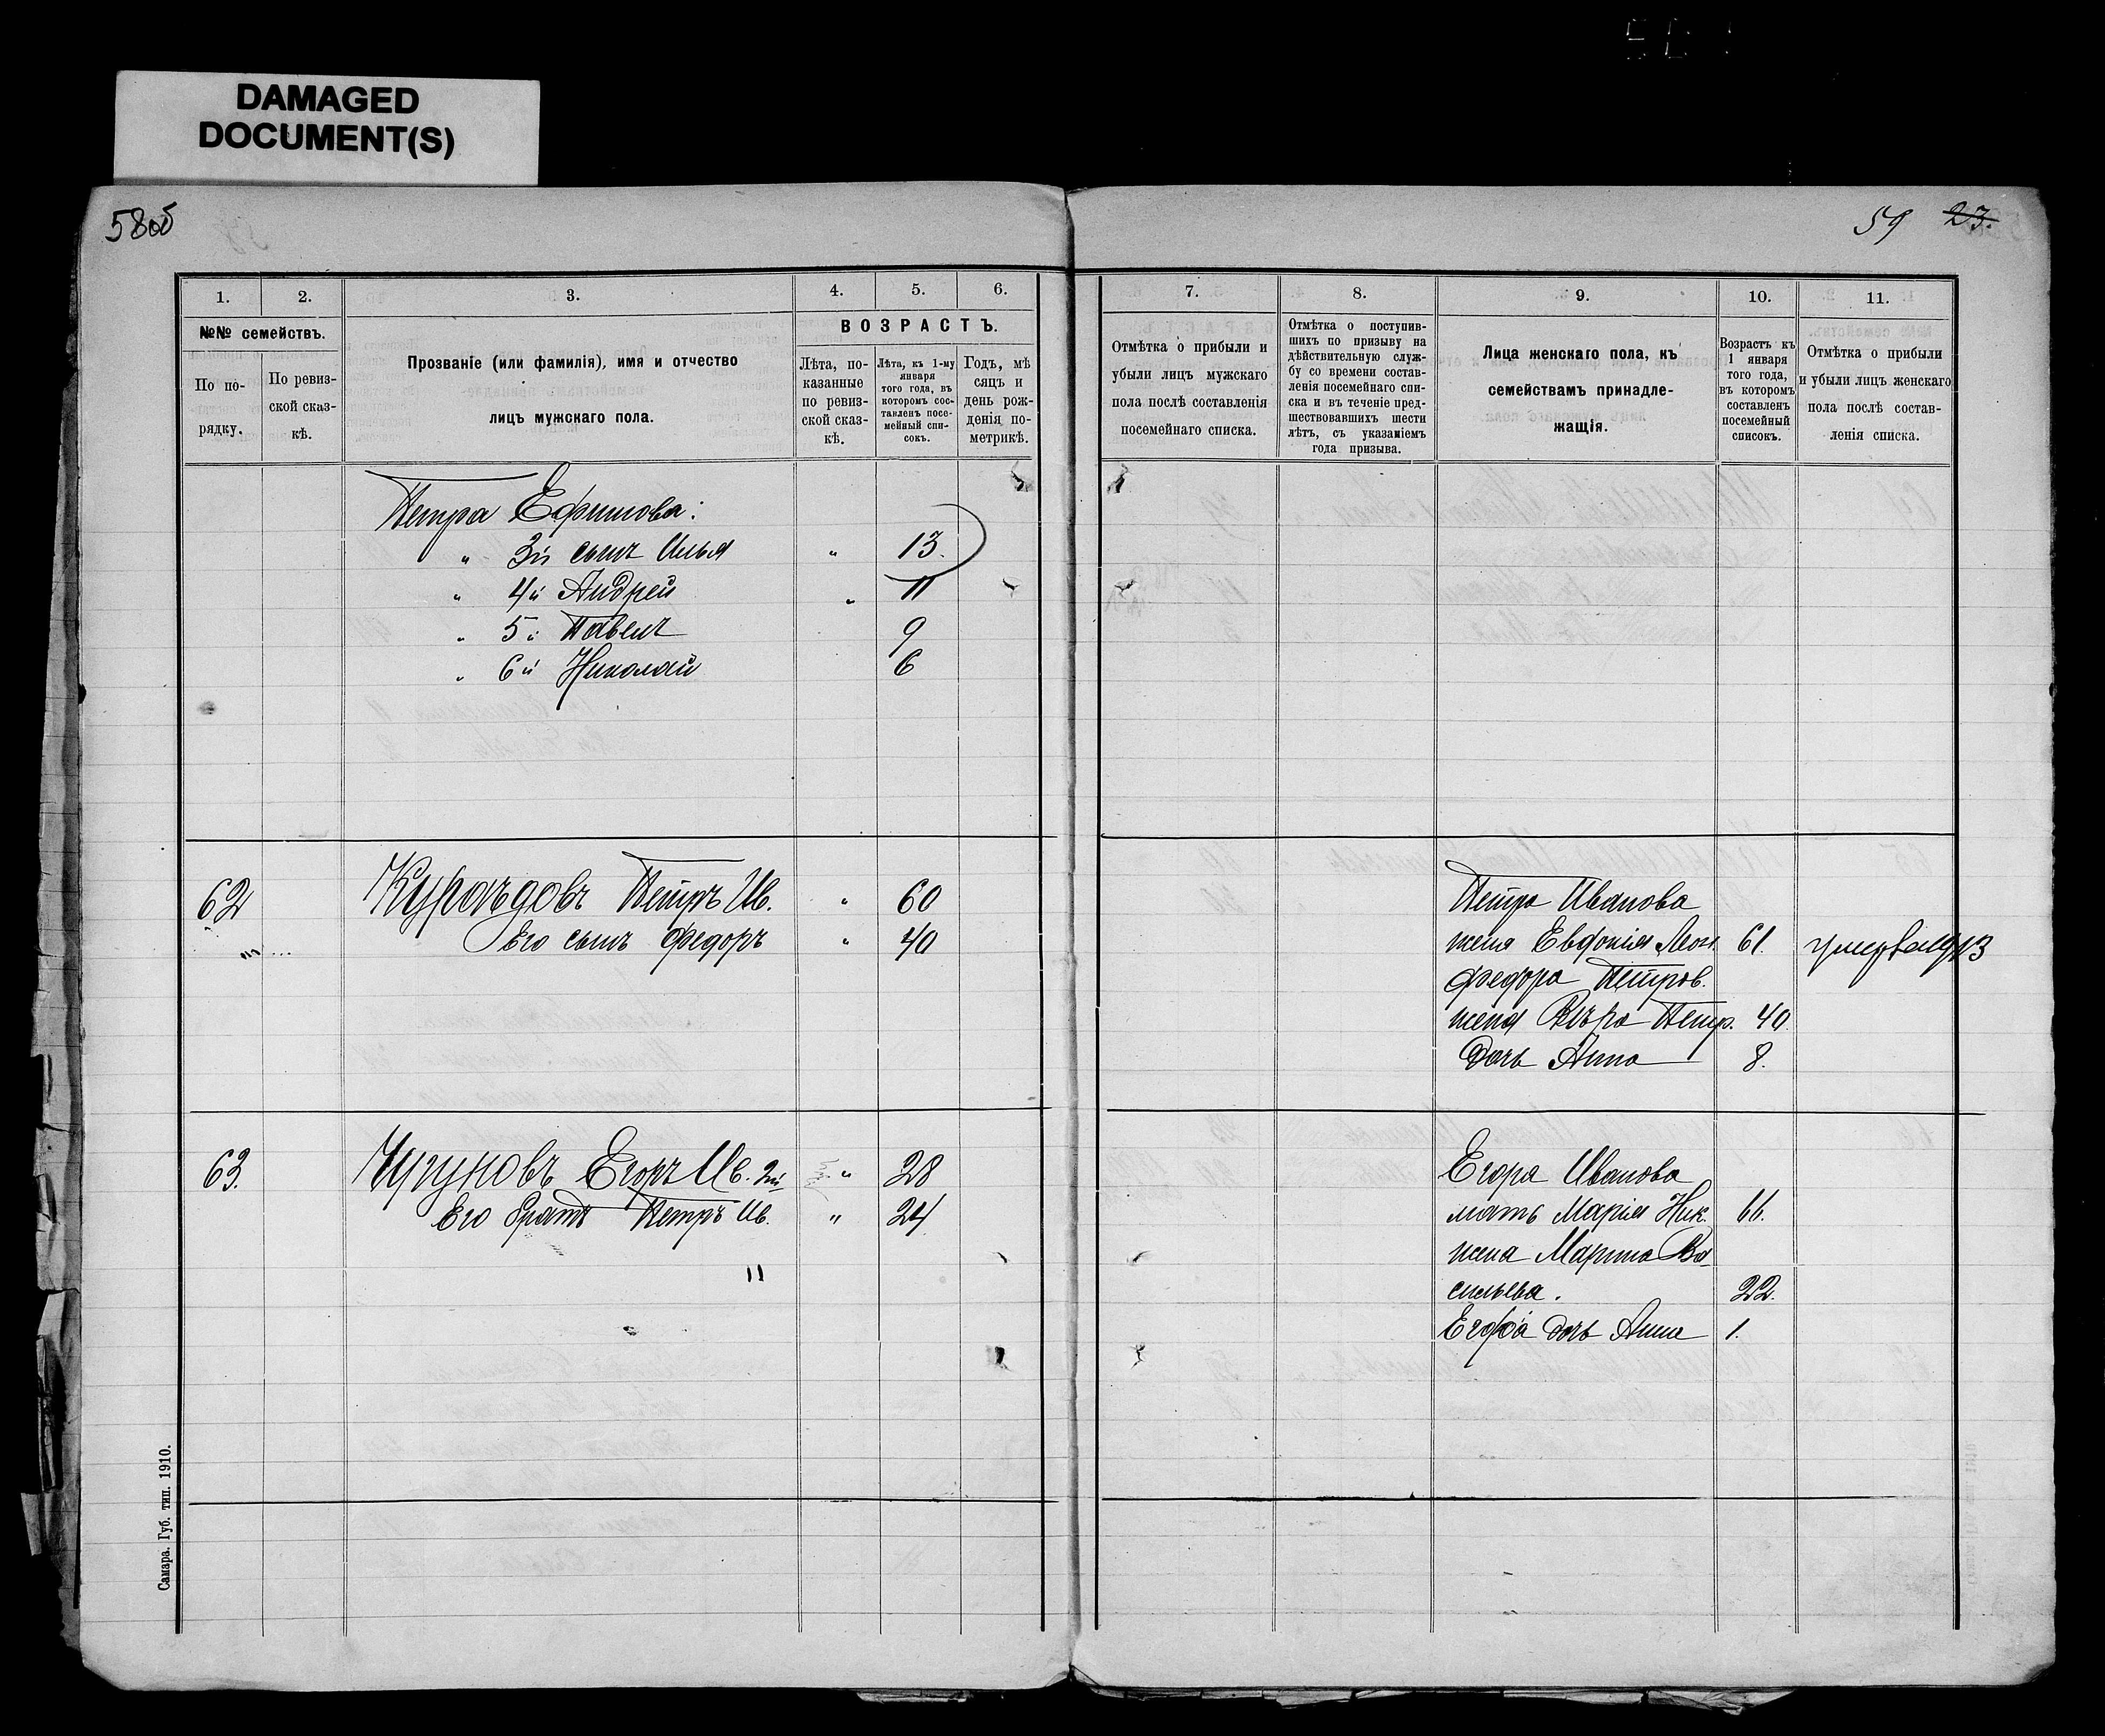 DAMAGED
DOCUMENT(S)
58об
59 23.
1. 2. 3. 4. 5. 6.
№№ семействъ.
По по-
рядку.
По ревиз-
ской сказ-
кѣ.
Прозваніе (или фамилія), имя и отчество
лицъ мужскаго пола.
ВОЗРАСТЪ.
Лѣта, по-
казанные
по ревиз-
ской сказ-
кѣ.
Лѣта, къ 1-му
января
того года, въ
которомъ сос-
тавленъ посе-
мейный спи-
сокъ.
Годъ, мѣ
сяцъ и
день рож-
денія по-
метрикѣ.
7. 8. 9. 10. 11.
Отмѣтка о прибыли и
убыли лицъ мужскаго
пола послѣ составленія
посемейнаго списка.
Отмѣтка о поступив-
шихъ по призыву на
дѣйствительную служ-
бу со времени состав-
ленія посемейнаго спи-
ска и въ теченіе пред-
шествовавшихъ шести
лѣтъ, съ указаніемъ
года призыва.
Лица женскаго пола, къ
семействамъ принадле-
жащія.
Возрастъ къ
1 января
того года,
въ которомъ
составленъ
посемейный
списокъ.
Отмѣтка о прибыли
и убыли лицъ женскаго
пола послѣ состав-
ленія списка.
Петра Ефимова:
„ 3й сынъ Илья „ 13.
„ 4й Андрей „ 11
„ 5й Павелъ 9
„ 6й Николай 6
62 Петръ Ив. „ 60
Его сынъ Федоръ „ 40
Петра Иванова
жена Евдокія Леон. 61. умерла 1913
Федора Петров.
жена Вѣра Петр. 40
дочь Анна 8.
63. Чугуновъ Егоръ Ив. 2й „ 28
Его братъ Петръ Ив. „ 24
"
Егора Иванова
мать Марія Ник. 66.
жена Марина Ва-
сильева. 22.
Егора дочь Анна 1.
Самара. Губ. тип. 1910.